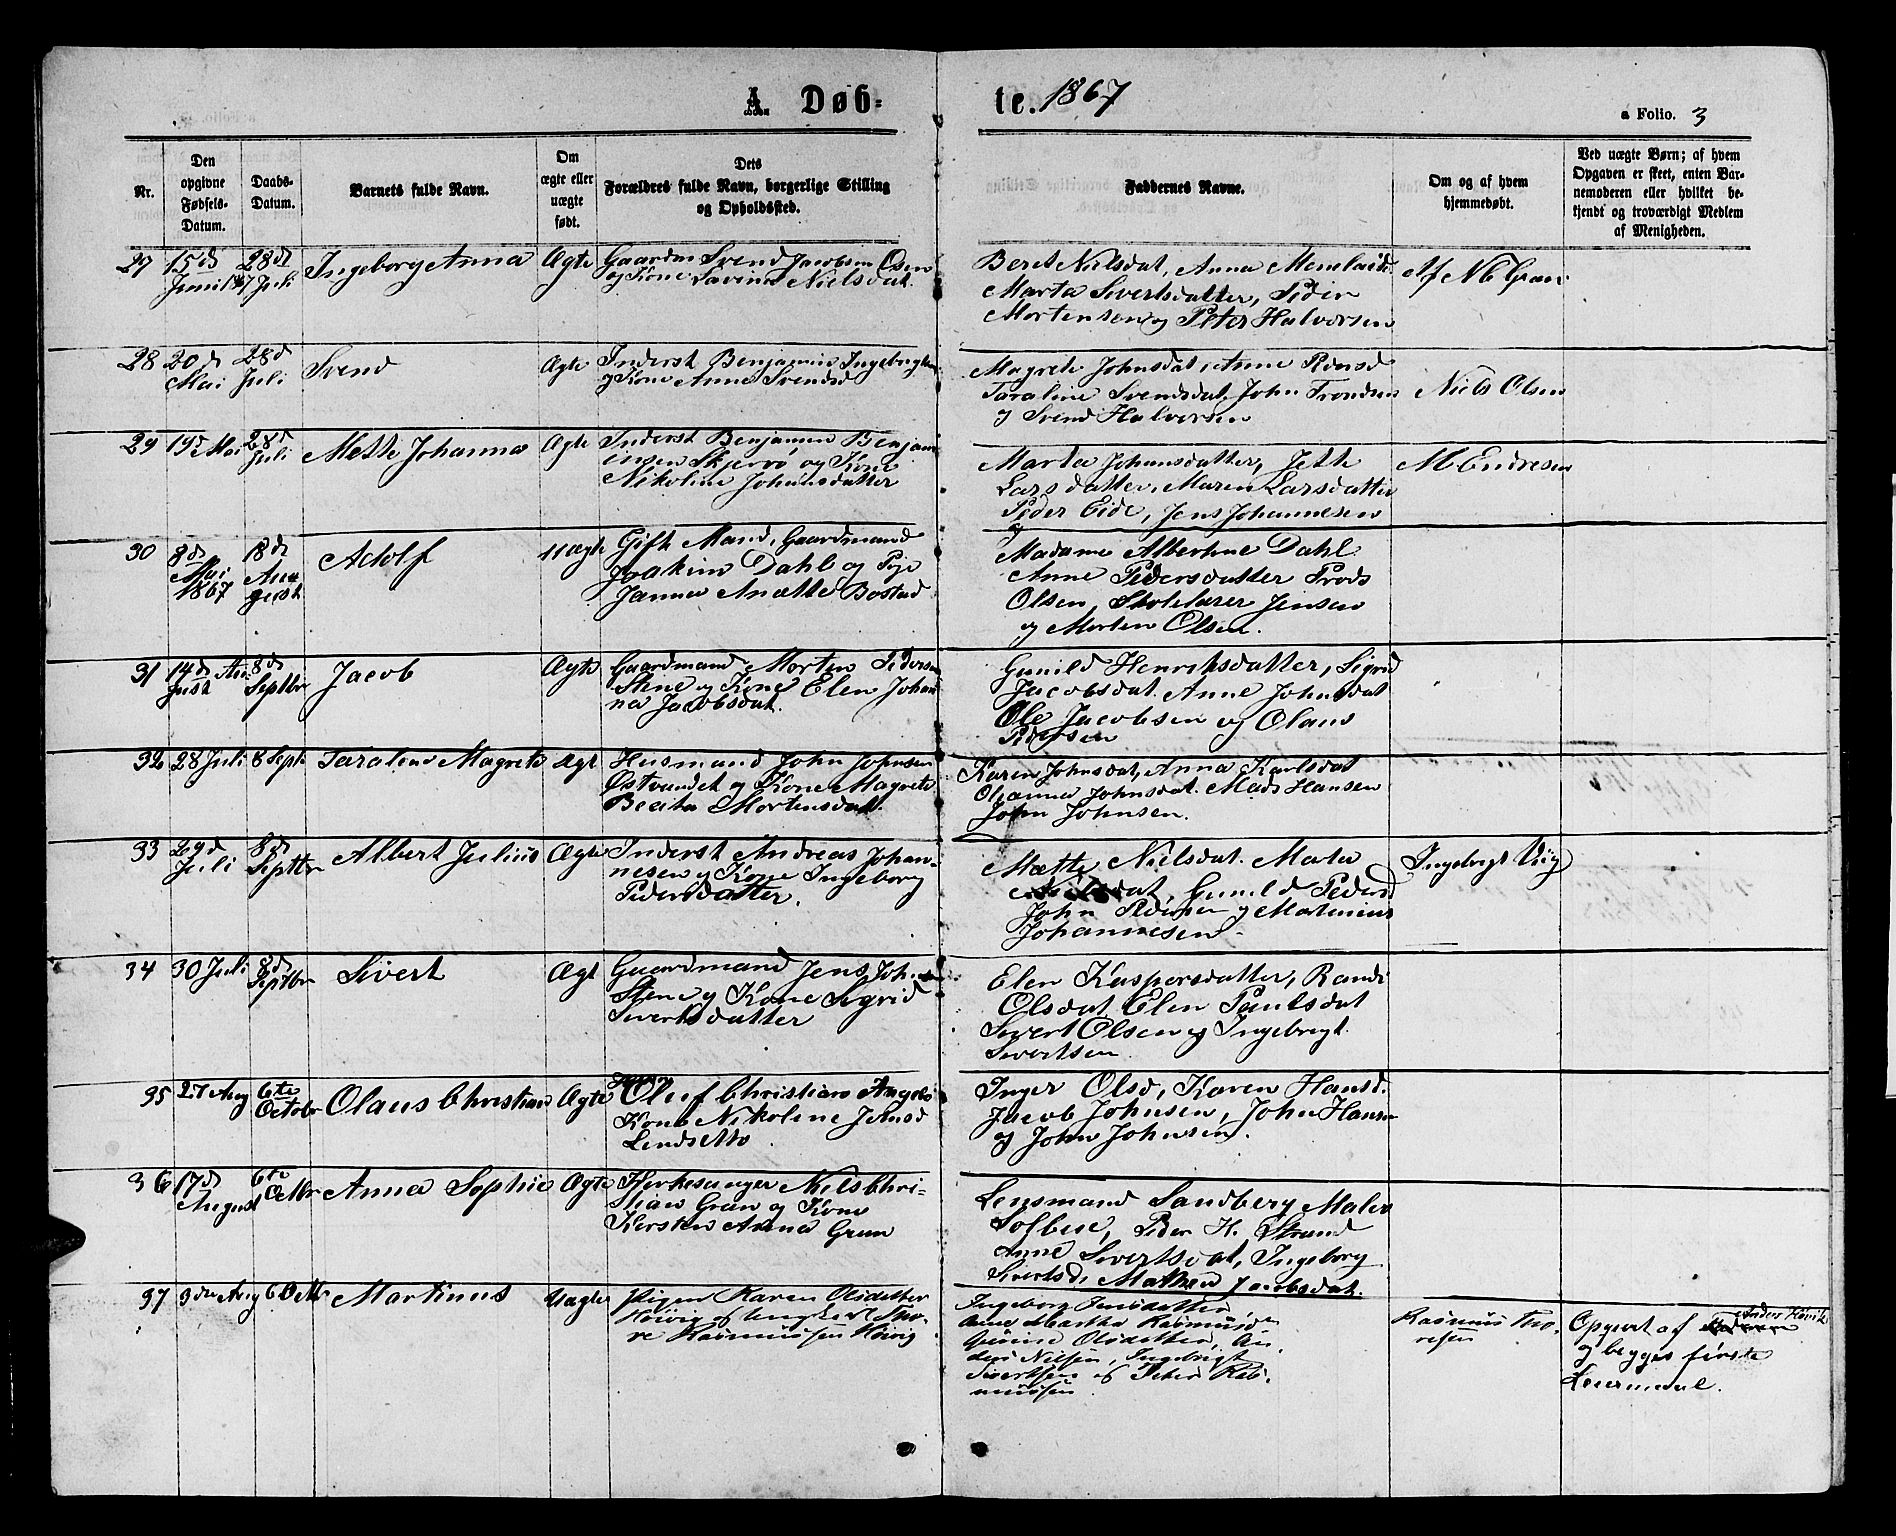 A. Døb=
te. 1867
a Folio. 3
Nr.
Den
opgivne
Fødsels-
Datum.
Daabs-
Datum.
Barnets fulde Navn.
Om
ægte eller
uægte
født.
Dets
Forældres fulde Navn, borgerlige Stilling
og Opholdssted.
Faddernes Navne.
Om og af hvem
hjemmedøbt.
Ved uægte Børn; af hvem
Opgaven er skeet, enten Bar-
nemoderen eller hvilket be-
kjendt og troværdigt Medlem
af Menigheden.
27 15d
Juni
28d
Juli
Ingeborg Anna
Ægte
Gaardm Svend Jacobsen Osen
og Kone Lavina Nielsdat.
Beret Nielsdat, Anna
Marta Sivertsdatter, Peder
Mortensen og Peter Halvorsen
Af N C Gran
28 20d
Mai
28d
Juli
Svend
Ægte
Inderst Benjamin Ingebrigtsen
og Kone Anne Svendsd
Magrete Johnsdat, Anne
Taraline Svendsdat, John Trondsen
og Svend Halvorsen
Niels Olsen
29 19d Mai
28d
Juli
Mette Johanna
Ægte
Inderst Benjamin Benjam
insen Skjervö og Kone
Nikoline Johansdatter
Marta Johansdatter, Jette
Larsdatter, Maren Larsdatter
Peder Eide, Jens Johannesen
M Endresen
30 8d
Mai
1867
18d
Au
gust
Adolf
Uægte
Gift Mand, Gaardmand
Joakim Dahl og Pige
Janna Anætte Bostad
Madame Albertine Dahl
Anne Pedersdatter
Olsen, Skolelærer Jensen
og Morten Olsen.
31 14d Au
gust
8d
Septbr
Jacob
Ægte
Gaardmand Morten Pedersen
Stene og Kone Elen Johan
na Jacobsdat.
Gunild Henriksdatter, Sigrid
Jacobsdat. Anne Johnsdat
Ole Jacobsen og Olaus
Pedersen
32 28 Juli
8 Sept
Taraline Magrete
Ægt
Husmand John Johnsen
Østvandet og Kone Magrete
Beata Mortensdat.
Karen Johnsdat, Anna Karlsdat
Oleanna Johnsdat. Mads Hansen
John Johnsen.
33 29d
Juli
8d
Septbr
Albert Julius
Ægte
Inderst Andreas Johan-
nesen og Kone Ingeborg
Pedersdatter.
Mætte Nielsdat. Marta
Gunild Pedersd
John Pedersen og Martinius
Johannesen.
Ingebrigt Viig
34 30 Juli
8d
Septbr
Sivert
Ægt
Gaardmand Jens Joh
Stene og Kone Sigrid
Sivertsdatter
Elen Kaspersdatter, Randi
Olsdat, Elen Paulsdat
Sivert Olsen og Ingebrigt
Sivertsen
35 27 Aug
6te
Octobr
Olaus Christian
Ægte
Oluf Christian
Kone Nikoline Jensd
Inger Olsd, Karen Hansd.
Jacob Johnsen, John Hansen
og John Johnsen.
36 17d
August
6te
Octbr
Anna Sophie
Ægte
Kirkesanger Niels Chri-
stian Gran og Kone
Kersten Anna Gran
Lensmand Sandberg, Maler
Solbue, Peder H. Strand
Anne Sivertsdat, Ingeborg
Sivertsd, Jacobsdat.
37 3die Aug
6 Octbr
Martinus
Uægte
Pigen Karen Olsdatter
Hövig & Ungkarl Tho-
re Rasmussen Hövig
Ingeborg Jensdatter,
Anne Martha Rasmusdr
Gurine Olsdatter, An-
ders Nilsen, Ingebrigt
Sivertsen & Peter Ras-
mussen
Rasmus Tho-
resen
Opgivet af Anders Hövik
og begges første
Leiermaal.